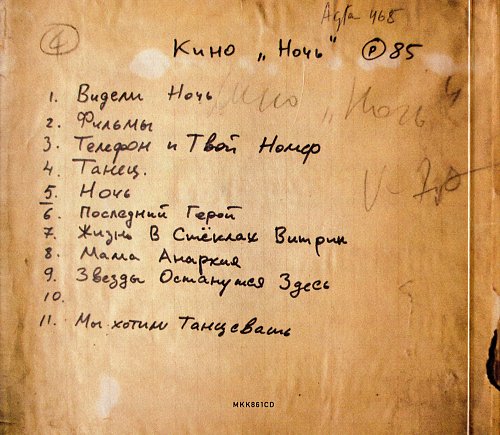 Agfa 468
4
Кино „Ночь" Ⓟ 85
Кино „Ночь" 4
1. Видели Ночь
2. Фильмы
3. Телефон и Твой Номер
4. Танец.
5. Ночь
6. Последний Герой
7. Жизнь В Стёклах Витрин
8. Мама Анархия
9. Звезды Останутся Здесь
10.
11. Мы хотим Танцевать
MKK861CD